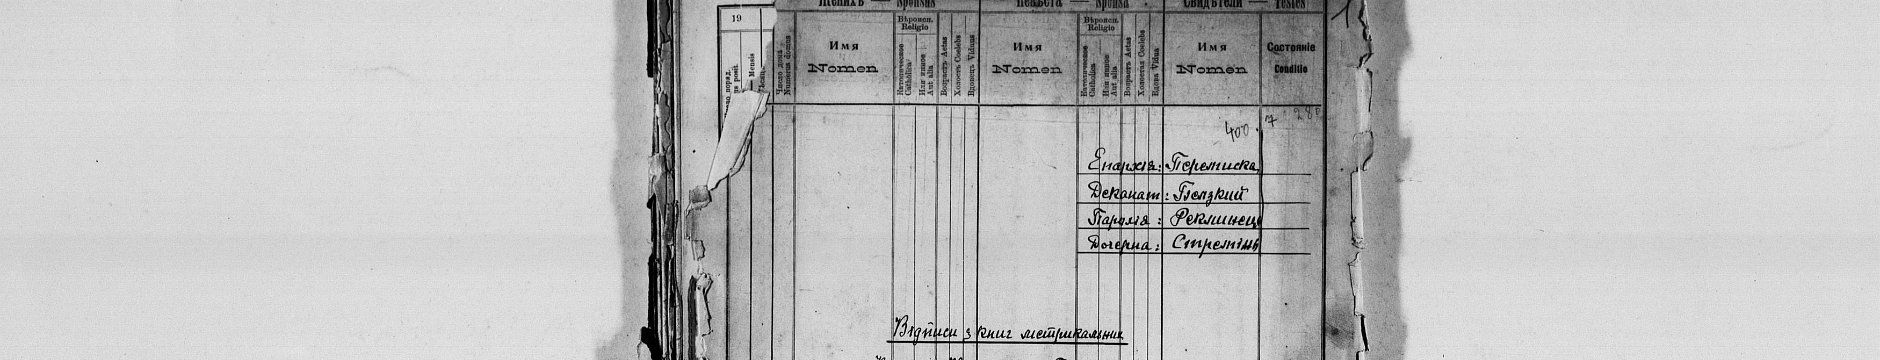 Женихъ — Sponsus Невѣста — Sponsa Свидѣтели — Testes
19
Mensis
Число дома
Numerus domus
Имя
Nomen
Вѣроисп.
Religio
Католическое
Catholica
Или иное
Aut alia
Возрастъ Aetas
Холостъ Coelebs
Вдовецъ Viduus
Имя
Nomen
Вѣроисп.
Religio
Католическое
Catholica
Или иное
Aut alia
Возрастъ Aetas
Холостая Coelebs
Вдова Vidua
Имя
Nomen
Состояніе
Conditio
1
400. 7 280
Епархія: Перемиска
Деканат: Белзкий
Парохія: Реклинець
Дочерна: Стремінь
Відписи з книг метрикальних